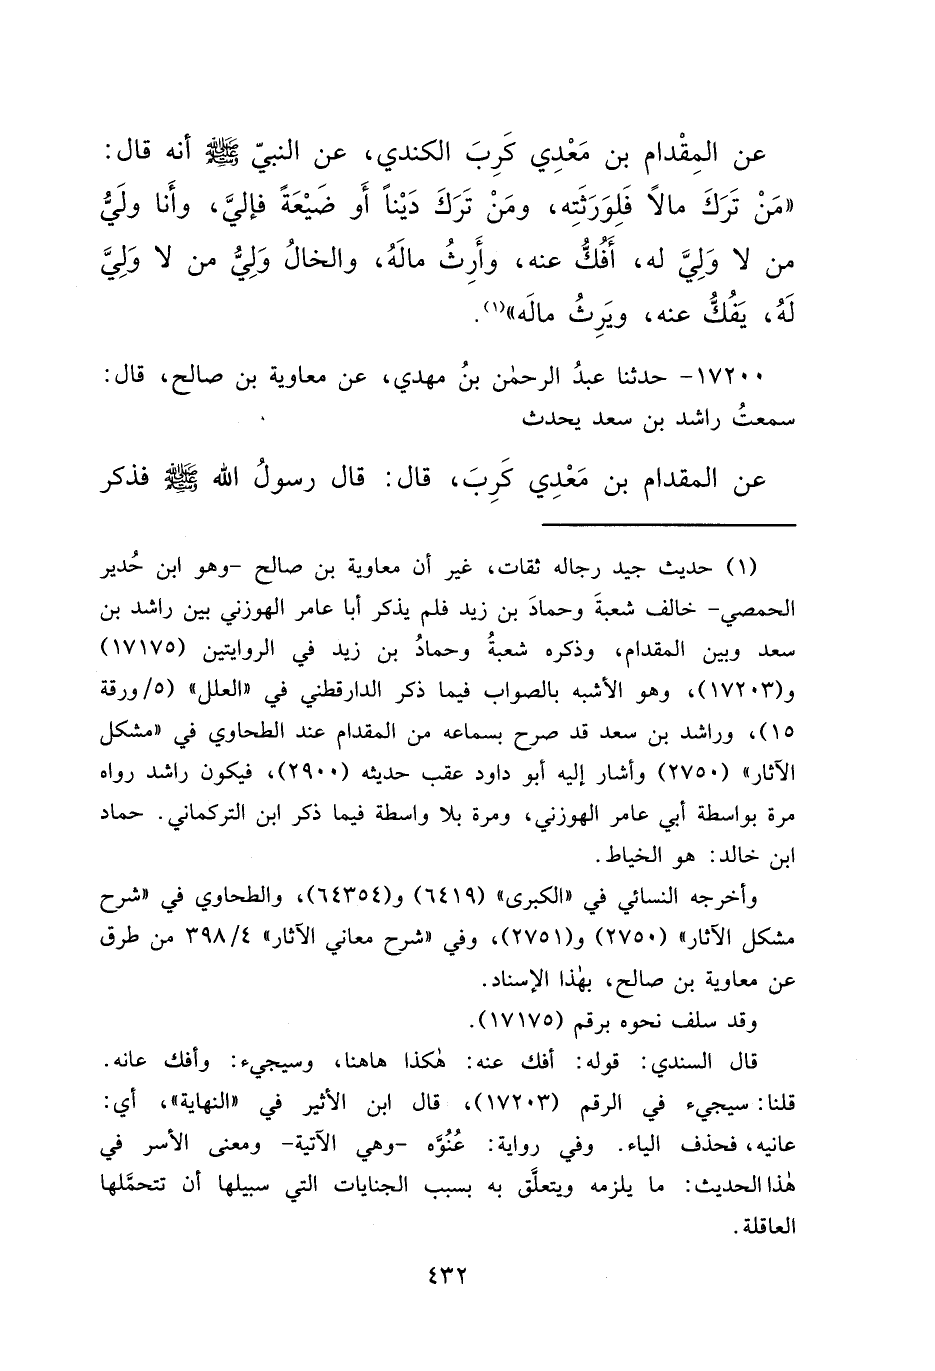 عن المِقْدام بن مَعْدِي كَرِبَ الكندي، عن النبيّ ﷺ أنه قال:
«مَنْ تَرَكَ مالاً فَلِوَرَثَتِه، ومَنْ تَرَكَ دَيْناً أَو ضَيْعَةً فإليَّ، وأَنا ولَيُّ
من لا وَلِيَّ له، أَفُكُّ عنه، وأَرِثُ مالَهُ، والخالُ وَلِيُّ من لا وَلِيَّ
لَهُ، يَفُكُّ عنه، ويَرِثُ مالَه»(١).
١٧٢٠٠- حدثنا عبدُ الرحمٰن بنُ مهدي، عن معاوية بن صالح، قال:
سمعتُ راشد بن سعد يحدث
عن المقدام بن مَعْدِي كَرِبَ، قال: قال رسولُ الله ﷺ فذكر
(١) حديث جيد رجاله ثقات، غير أن معاوية بن صالح -وهو ابن حُدير
الحمصي- خالف شعبةَ وحمادَ بن زيد فلم يذكر أبا عامر الهوزني بين راشد بن
سعد وبين المقدام، وذكره شعبةُ وحمادُ بن زيد في الروايتين (١٧١٧٥)
و(١٧٢٠٣)، وهو الأشبه بالصواب فيما ذكر الدارقطني في «العلل» (٥/ورقة
١٥)، وراشد بن سعد قد صرح بسماعه من المقدام عند الطحاوي في «مشكل
الآثار» (٢٧٥٠) وأشار إليه أبو داود عقب حديثه (٢٩٠٠)، فيكون راشد رواه
مرة بواسطة أبي عامر الهوزني، ومرة بلا واسطة فيما ذكر ابن التركماني. حماد
ابن خالد: هو الخياط.
وأخرجه النسائي في «الكبرى» (٦٤١٩) و(٦٤٣٥٤)، والطحاوي في «شرح
مشكل الآثار» (٢٧٥٠) و(٢٧٥١)، وفي «شرح معاني الآثار» ٣٩٨/٤ من طرق
عن معاوية بن صالح، بهٰذا الإسناد.
وقد سلف نحوه برقم (١٧١٧٥).
قال السندي: قوله: أفك عنه: هٰكذا هاهنا، وسيجيء: وأفك عانه.
قلنا: سيجيء في الرقم (١٧٢٠٣)، قال ابن الأثير في «النهاية»، أي:
عانيه، فحذف الياء. وفي رواية: عُنُوَّه -وهي الآتية- ومعنى الأسر في
هٰذا الحديث: ما يلزمه ويتعلَّق به بسبب الجنايات التي سبيلها أن تتحمَّلها
العاقلة.
٤٣٢